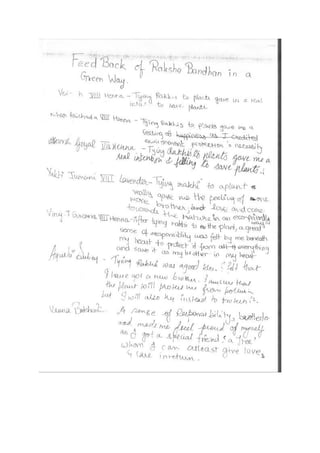 Feed Back of Raksha Bandhan in a
Green Way.
VIII Henna - Tying Rakhis to plants gave me a real
to save plants
VIII Henna - Tying Rakhis to plants gave me a
feeling of happiness as I
environment protection's necessity
Goyal VIII Henna - Tying Rakhis to plants gave me a
real intention & felling to save plants.
VIII Lavender - Tying rakhi to a plant
really gave me the feeling of one
more brother, and love and care
towards the nature in an eco-friendly
way
VIII Henna - After tying rakhi to the plant, a great
sense of responsibility was felt by me beneath
my heart to protect it from everything
and save it as my brother in my heart
Tying Rakhi was a good idea. I felt that
I have got a new brother. I ensure that
the plant will protect me from pollution
but I will also try instead to protect it.
A sense of Responsibility,
and made me feel proud of myself
as I got a special friend 'a tree'
whom I can atleast give love
& care in return.